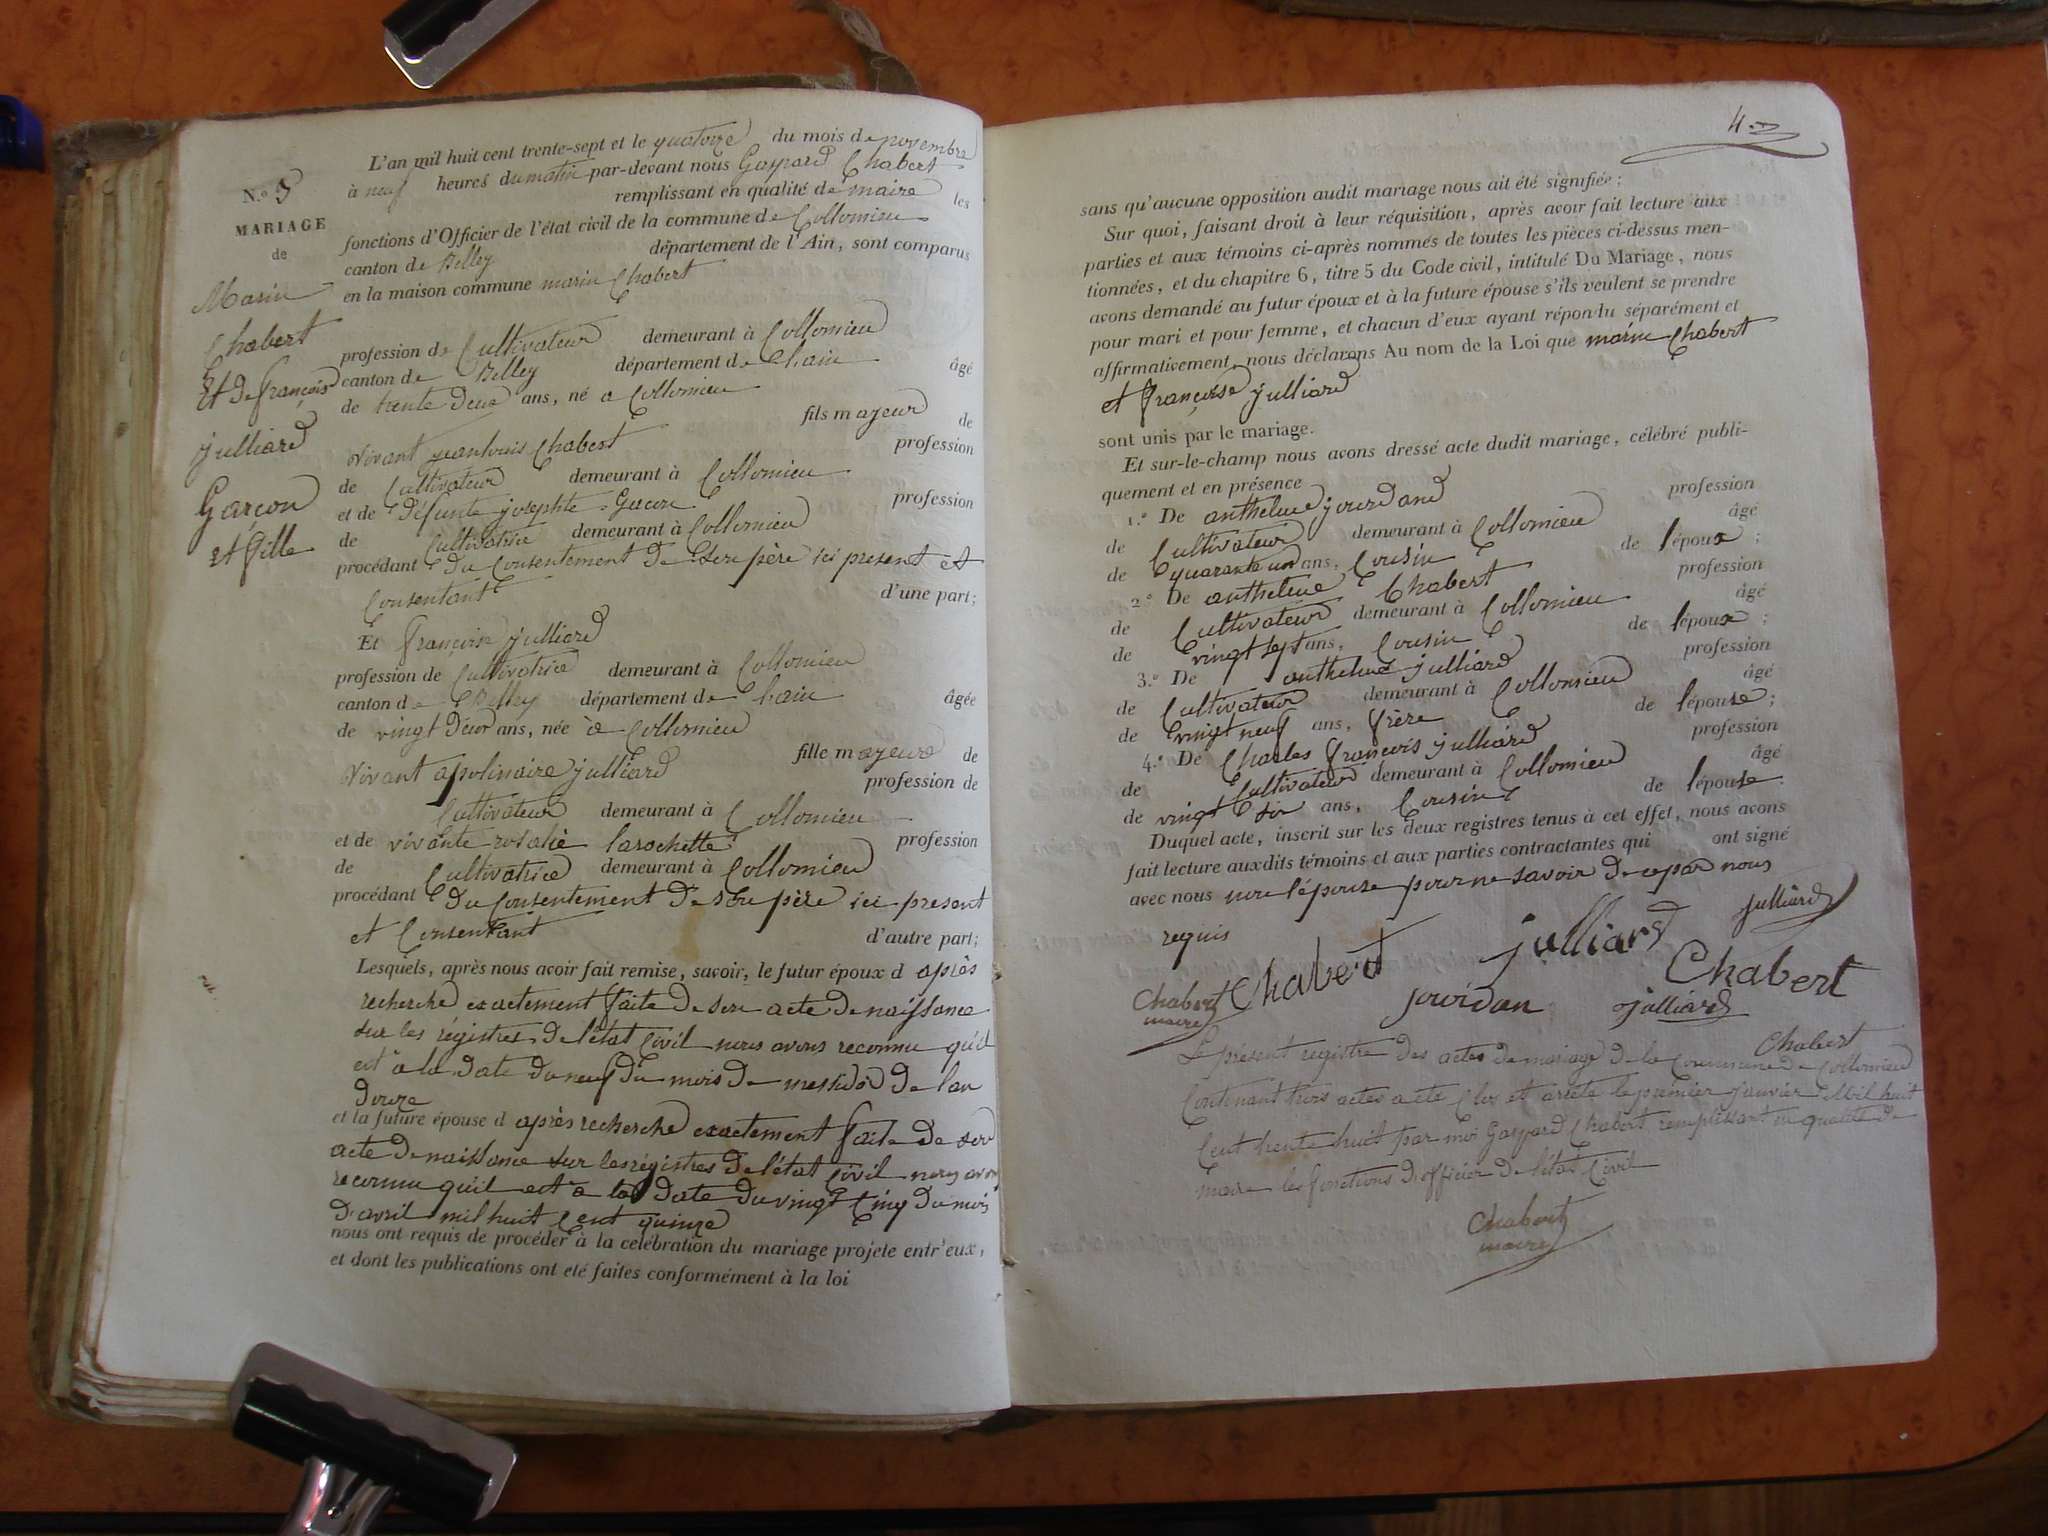 N.º 3
MARIAGE
de
Marin
Chabert
Et de françoise
julliard
Garçon
et fille
L'an mil huit cent trente-sept et le quatorze du mois de novembre
à neuf heures du matin par-devant nous Gaspard Chabert
remplissant en qualité de maire les
fonctions d'Officier de l'état civil de la commune de Collomieu
canton de Belley département de l'Ain, sont comparus
en la maison commune marin Chabert
profession de Cultivateur demeurant à Collomieu
canton de Belley département de Lain âgé
de trente deux ans, né a Collomieu
fils majeur de
vivant jeanlouis Chabert profession
de Cultivateur demeurant à Collomieu
et de défunte josephte profession
de Cultivatrice demeurant à Collomieu
procédant du Consentement de son père ici present et
Consentant d'une part;
Et françoise julliard
profession de Cultivatrice demeurant à Collomieu
canton de Belley département de Lain âgée
de vingt deux ans, née à Collomieu
fille majeure de
vivant apolinaire julliard profession de
Cultivateur demeurant à Collomieu
et de vivante rosalie larochette profession
de Cultivatrice demeurant à Collomieu
procédant du Consentement de son père ici present
et Consentant d'autre part;
Lesquels, après nous avoir fait remise, savoir, le futur époux d après
recherche exactement faite de son acte de naissance
sur les régistres de l'état Civil nous avons reconnu qu'il
est à la date du neuf du mois de messidor de l'an
douze
et la future épouse d après recherche exactement faite de son
acte de naissance sur les régistres de l'état Civil nous avons
reconnu qu'il est à la date du vingt Cinq du mois
d'avril mil huit Cent quinze
nous ont requis de procéder à la célébration du mariage projeté entr'eux,
et dont les publications ont été faites conformément à la loi
4.
sans qu'aucune opposition audit mariage nous ait été signifiée;
Sur quoi, faisant droit à leur réquisition, après avoir fait lecture aux
parties et aux témoins ci-après nommés de toutes les pièces ci-dessus men-
tionnées, et du chapitre 6, titre 5 du Code civil, intitulé Du Mariage, nous
avons demandé au futur époux et à la future épouse s'ils veulent se prendre
pour mari et pour femme, et chacun d'eux ayant répondu séparément et
affirmativement, nous déclarons Au nom de la Loi que marin Chabert
et françoise julliard
sont unis par le mariage.
Et sur-le-champ nous avons dressé acte dudit mariage, célébré publi-
quement et en présence
1.º De anthelme jourdand profession
de Cultivateur demeurant à Collomieu âgé
de quarante un ans, Cousin de l'époux;
2.º De anthelme Chabert profession
de Cultivateur demeurant à Collomieu âgé
de vingt sept ans, Cousin de l'époux;
3.º De anthelme julliard profession
de Cultivateur demeurant à Collomieu âgé
de vingt neuf ans, frère de l'épouse;
4.º De Charles françois julliard profession
de Cultivateur demeurant à Collomieu âgé
de vingt six ans, Cousin de l'épouse.
Duquel acte, inscrit sur les deux registres tenus à cet effet, nous avons
fait lecture auxdits témoins et aux parties contractantes qui ont signé
avec nous non l'épouse pour ne savoir de ce par nous
requis
julliard
julliard
Chabert maire
Chabert
Chabert
jouridan
julliard
Chabert
Le présent registre des actes de mariage de la Commune de Collomieu
Contenant trois actes a été Clos et arrêté le premier janvier Mil huit
Cent trente huit par moi Gaspard Chabert remplissant en qualité de
maire les fonctions d'officier de l'état Civil
Chabert
maire